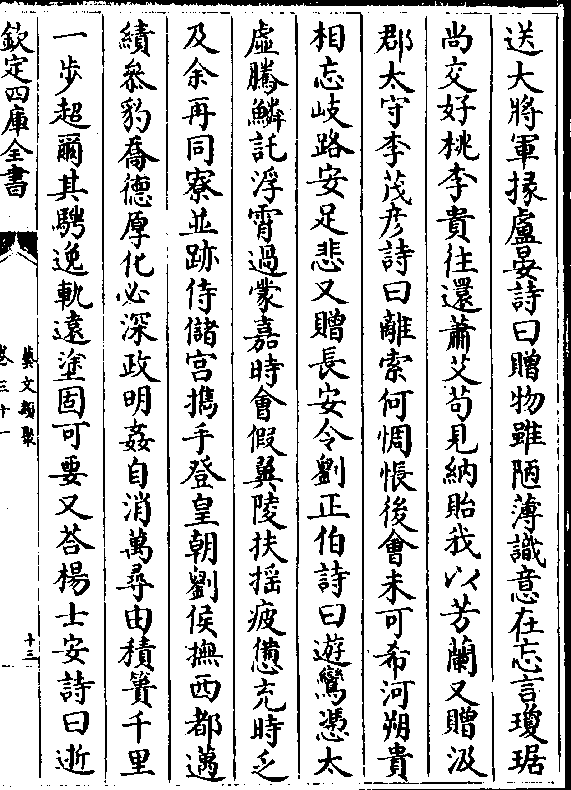 送大將軍掾盧晏詩曰贈物雖陋薄識意在忘言瓊琚
尚交好桃李貴往還蕭艾苟見納貽我以芳蘭又贈汲
郡太守李茂彦詩曰離索何惆悵後會未可希河朔貴
相忘岐路安足悲又贈長安令劉正伯詩曰遊鸞憑太
虛騰鱗託浮霄過蒙嘉時會假翼陵扶揺疲憊充時乏
及余再同寮並跡侍儲宫携手登皇朝劉侯撫西都邁
績參豹喬德厚化必深政明姦自消萬尋由積簣千里
一步超爾其騁逸軌遠塗固可要又荅楊士安詩曰逝
欽定四庫全書
藝文類聚
卷三十一
十三